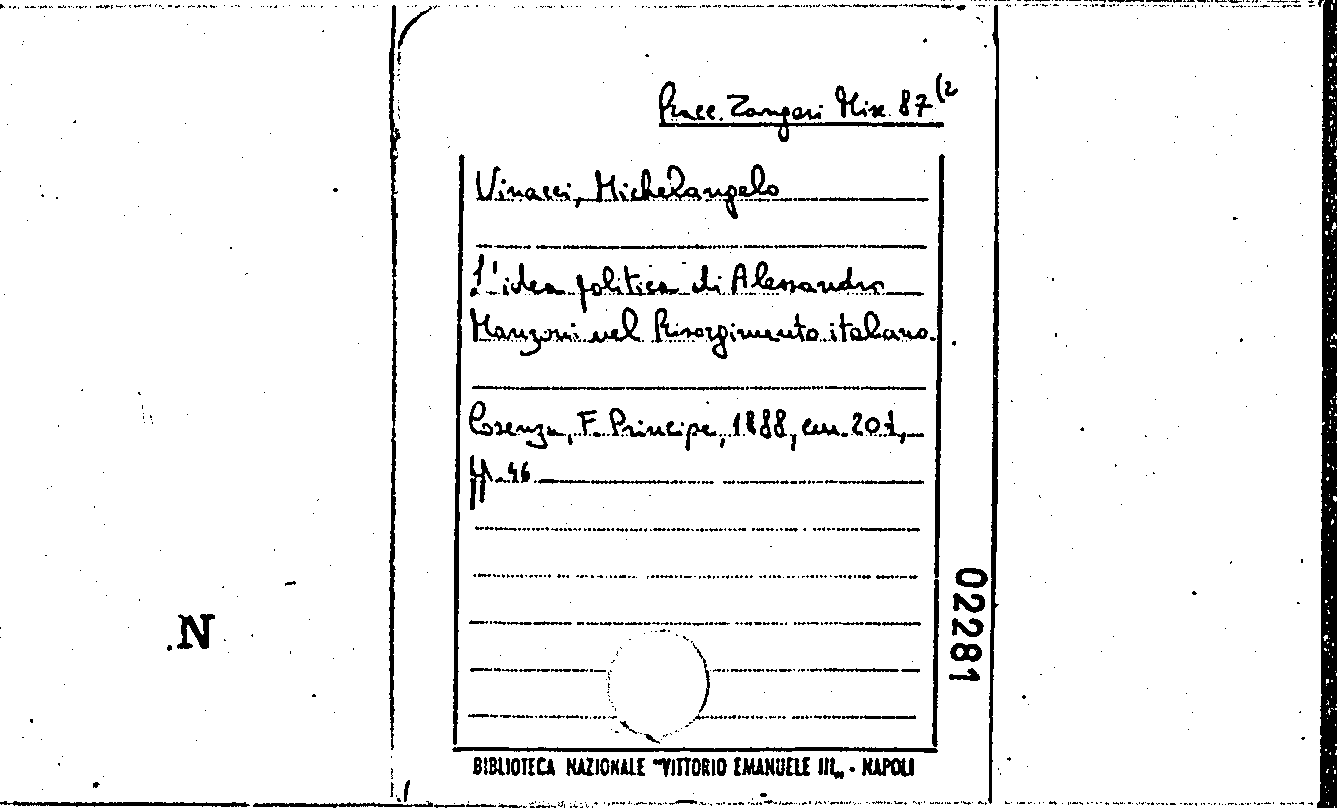 Race. Zangari Misc. 87 (2
Vinacci, Michelangelo
L'idea politica di Alessandro
Manzoni nel Risorgimento italiano.
Cosenza, F. Principe, 1888, cm. 20½,
pp. 46
02281
.N
BIBLIOTECA NAZIONALE "VITTORIO EMANUELE III„ - NAPOLI